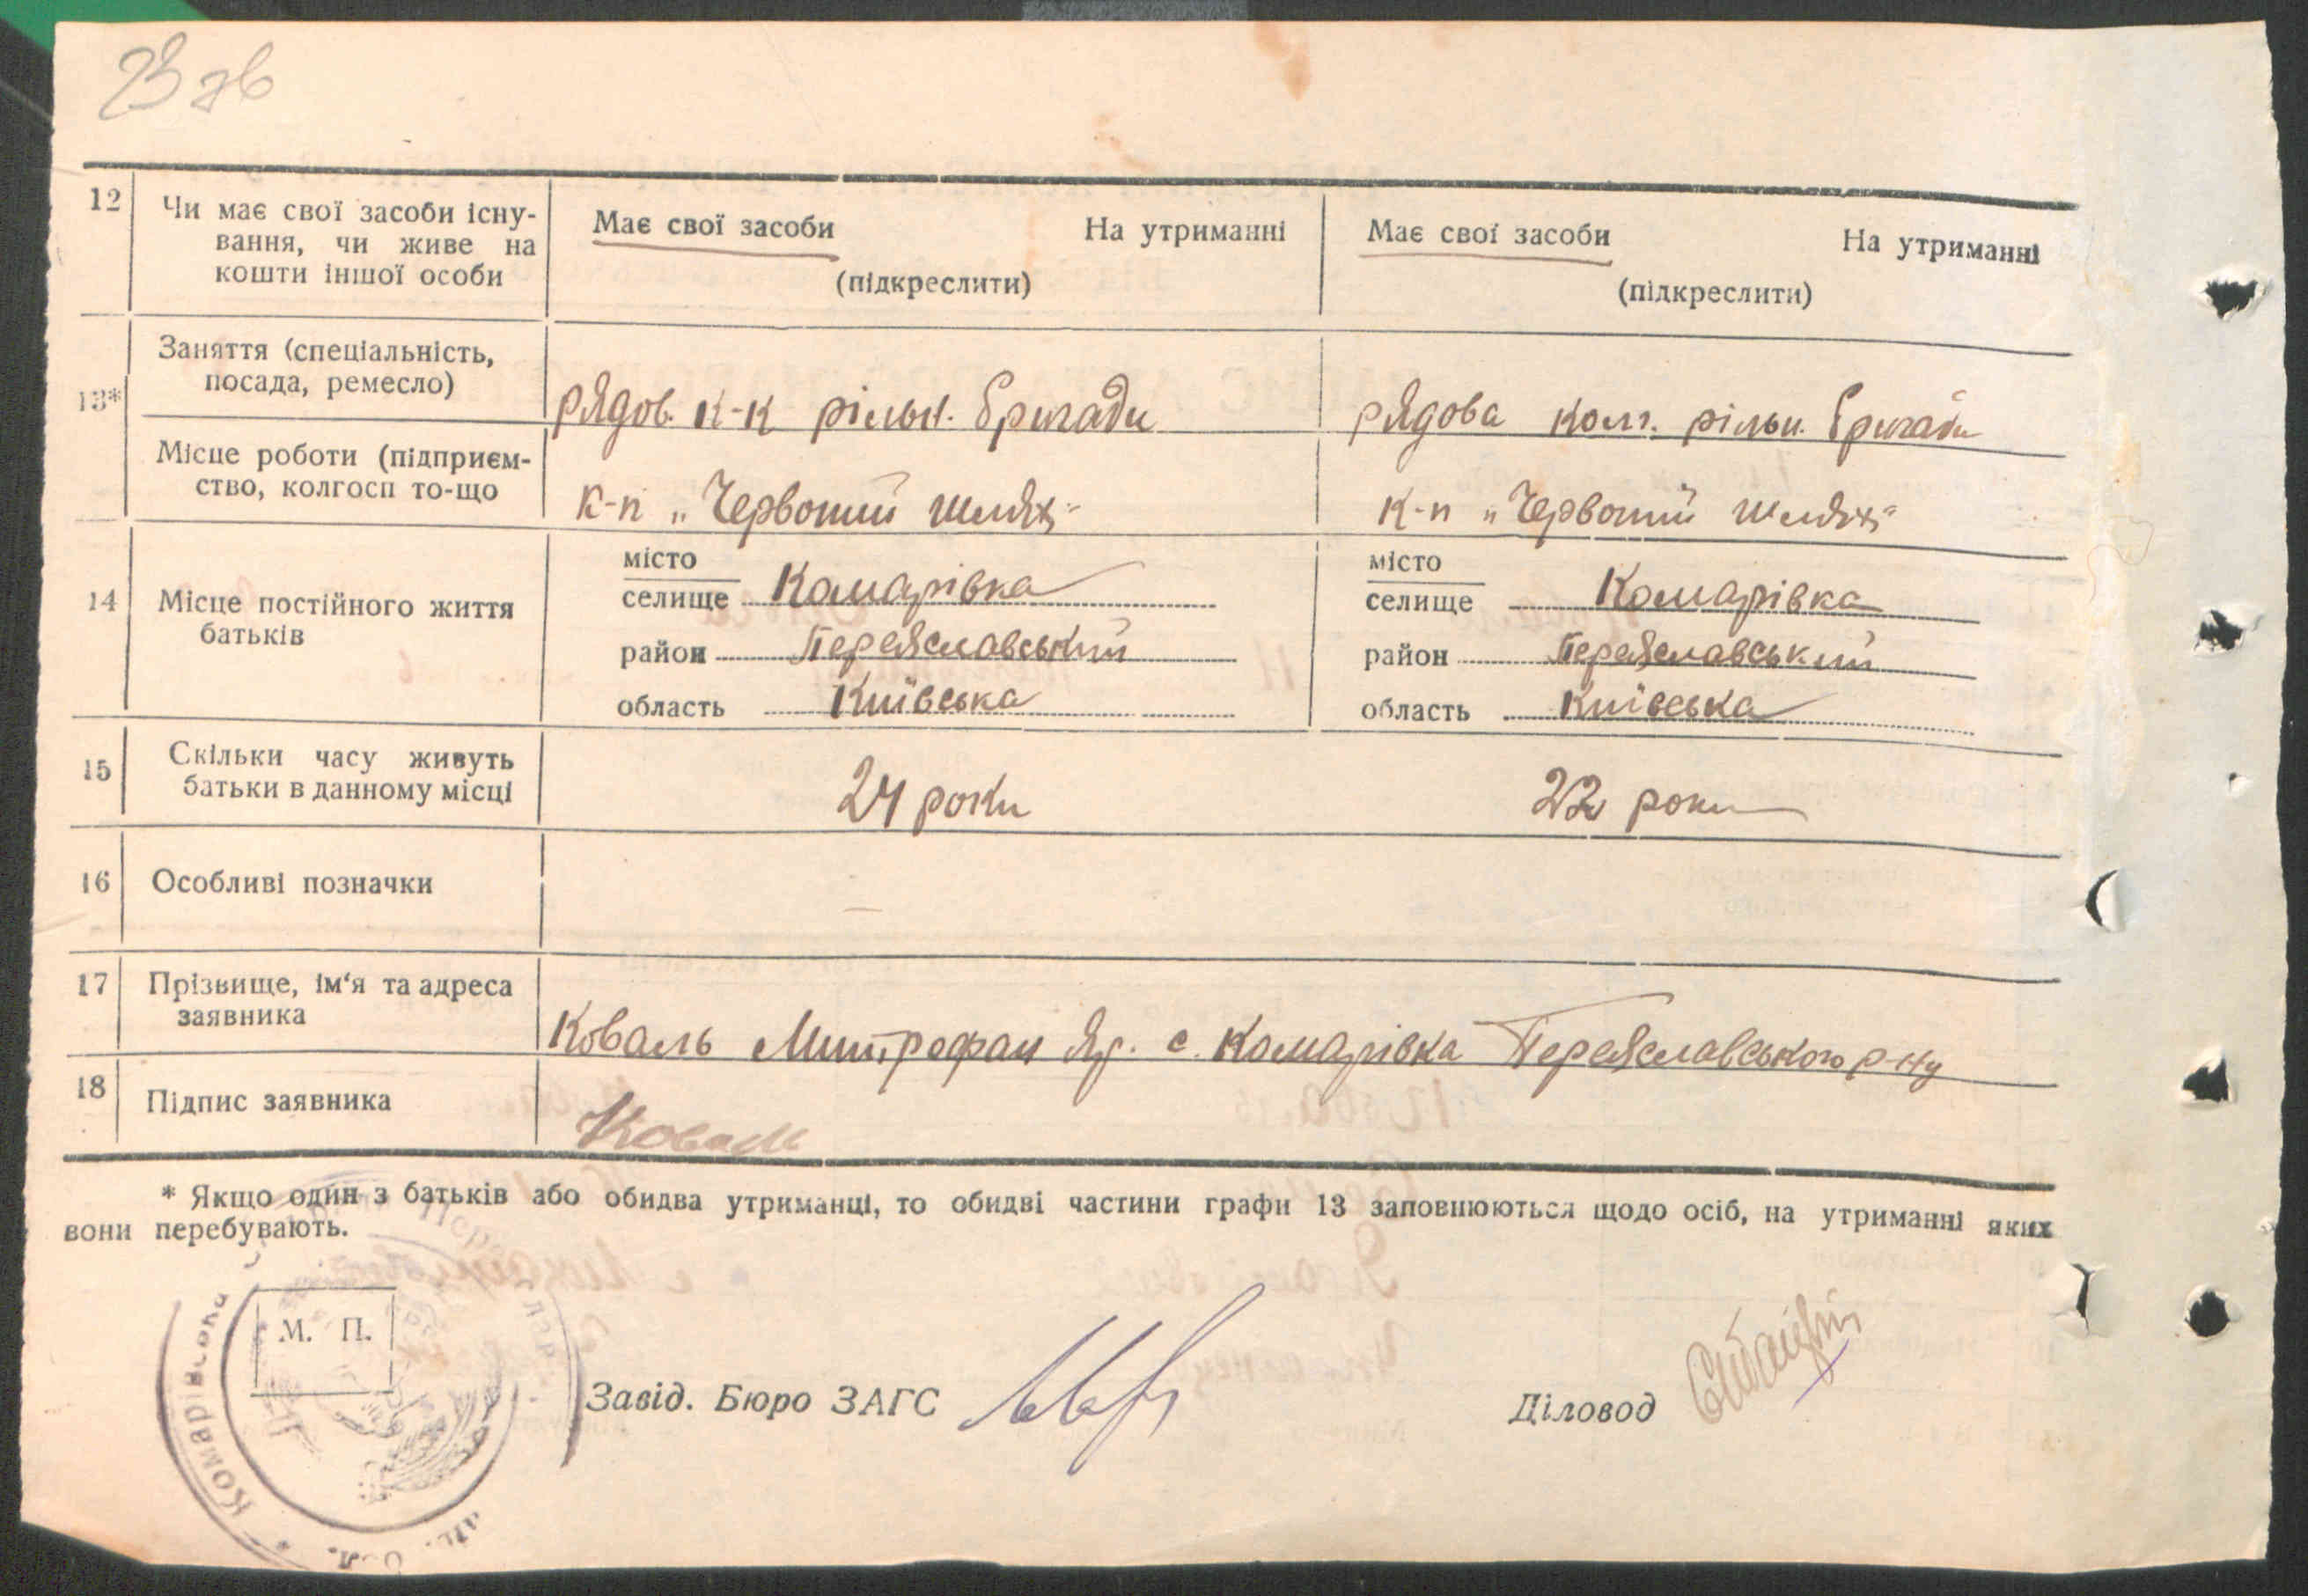 23 зв
12
Чи має свої засоби існу-
вання, чи живе на
кошти іншої особи
Має свої засоби На утриманні
(підкреслити)
Має свої засоби На утриманні
(підкреслити)
13*
Заняття (спеціальність,
посада, ремесло)
рядов. к-к рільн. бригади
рядова колг. рільн. бригади
Місце роботи (підприєм-
ство, колгосп то-що
к-п „Червоний шлях"
к-п „Червоний шлях"
14
Місце постійного життя
батьків
місто
селище Комарівка
район Переяславський
область Київська
місто
селище Комарівка
район Переяславський
область Київська
15
Скільки часу живуть
батьки в данному місці
24 роки
22 роки
16
Особливі позначки
—
17
Прізвище, ім'я та адреса
заявника
Коваль Митрофан Яр. с. Комарівка Переяславського р-ну
18
Підпис заявника
Коваль
* Якщо один з батьків або обидва утриманці, то обидві частини графи 13 заповнюються щодо осіб, на утриманні яких
вони перебувають.
М. П.
Комарівська
Завід. Бюро ЗАГС
Діловод